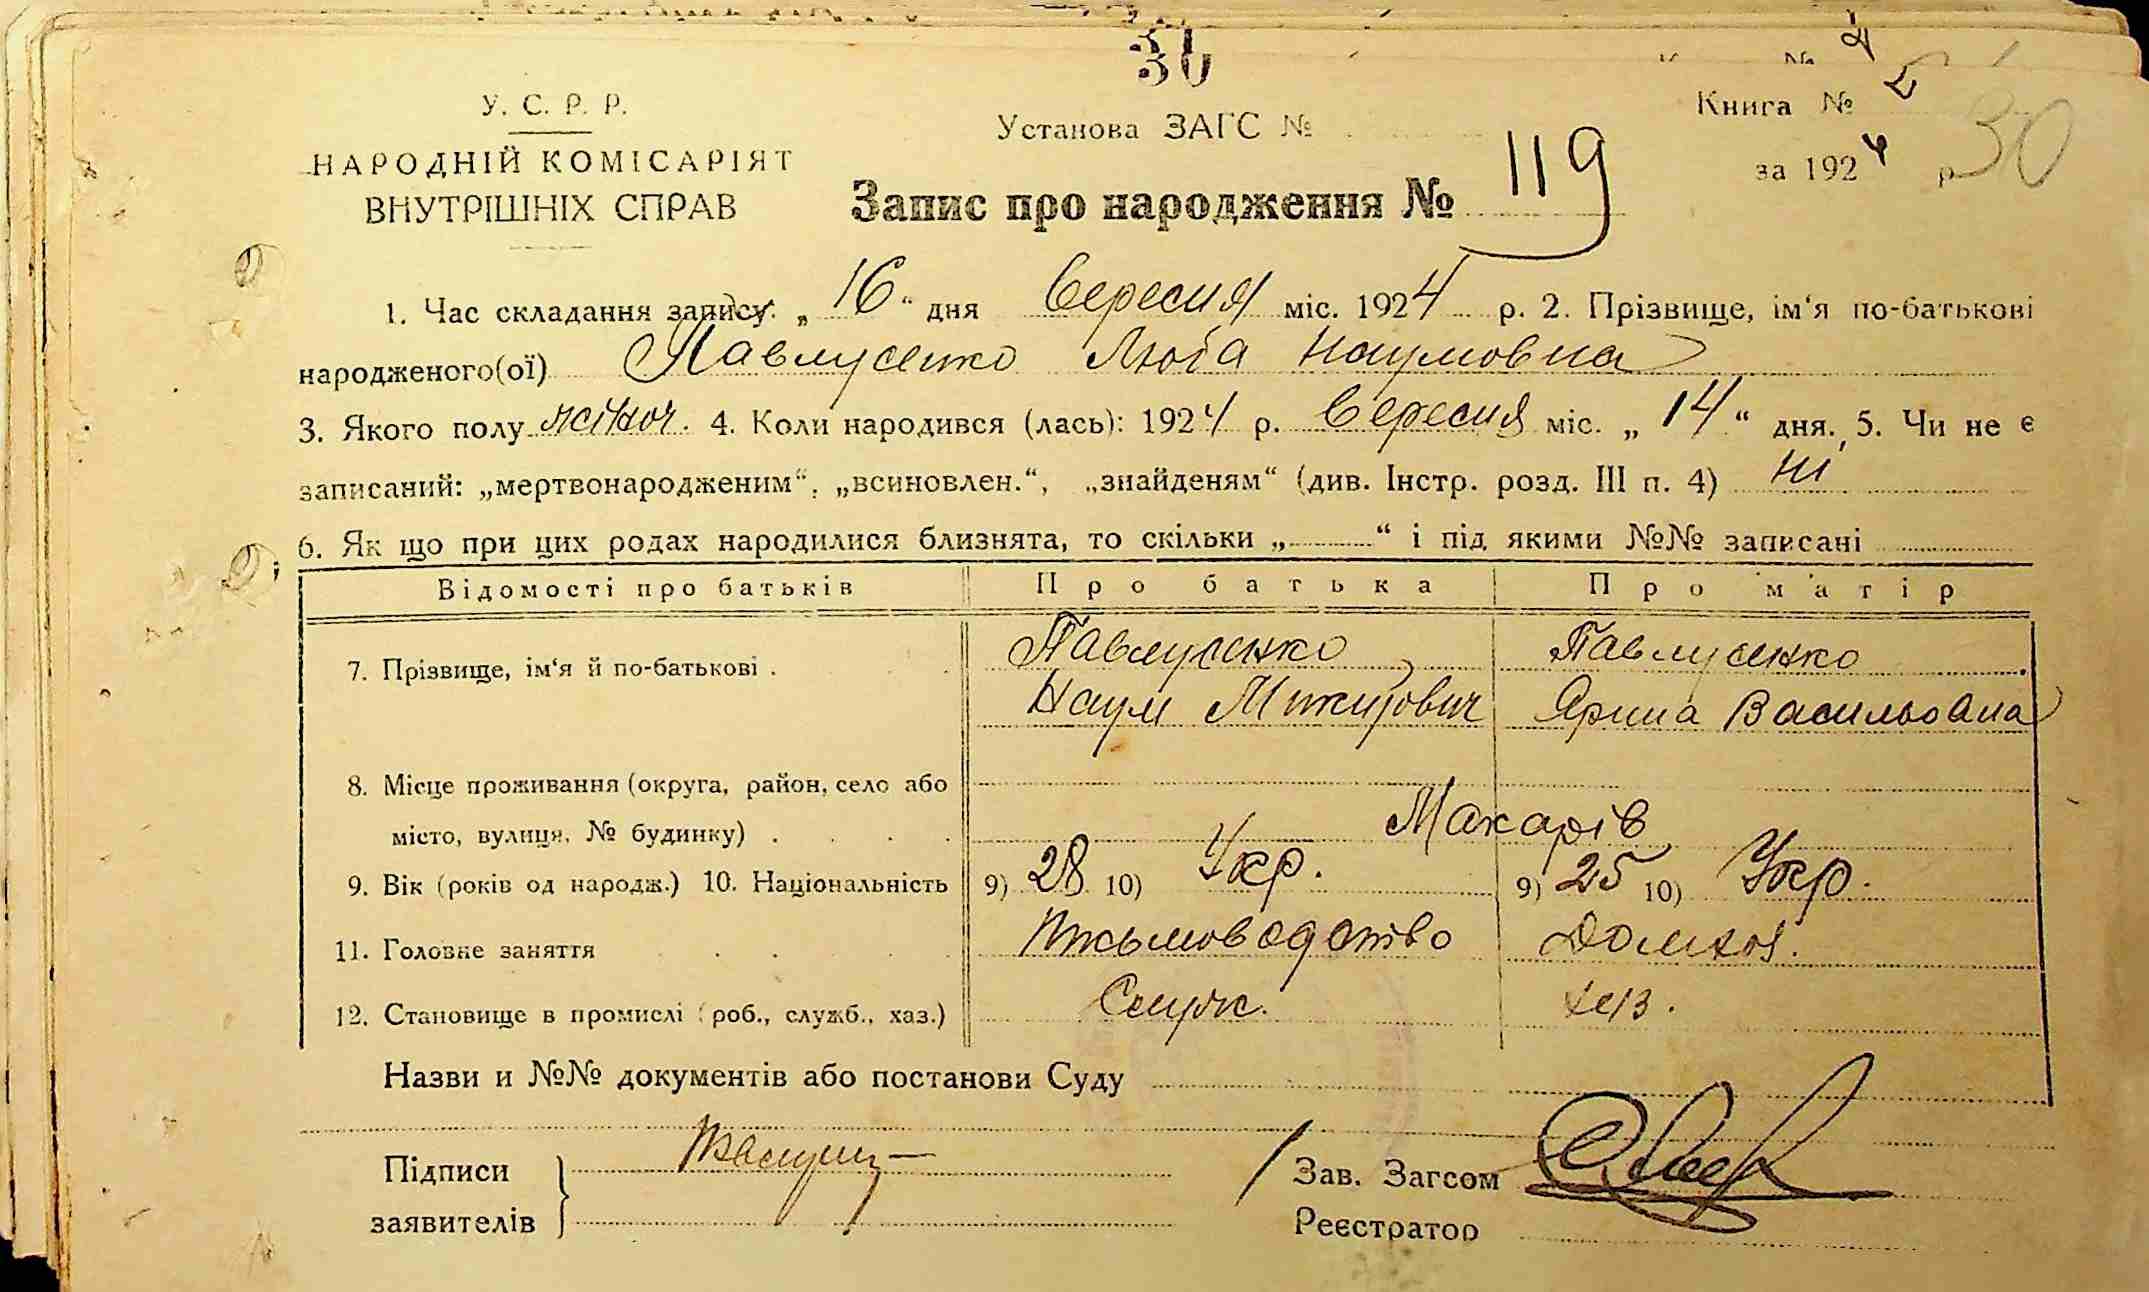 30
У. С. Р. Р.
НАРОДНІЙ КОМІСАРІЯТ
ВНУТРІШНІХ СПРАВ
Установа ЗАГС №
Запис про народження № 119
Книга №
за 1924 р
30
1. Час складання запису. „16“ дня Вересня міс. 1924 р. 2. Прізвище, ім'я по-батькові
народженого(ої) Павлусенко Люба Наумовна
3. Якого полу жіноч. 4. Коли народився (лась): 1924 р. Вересня міс. „14“ дня. 5. Чи не є
записаний: „мертвонародженим“, „всиновлен.“, „знайденям“ (див. Інстр. розд. III п. 4) ні
6. Як що при цих родах народилися близнята, то скільки „ “ і під якими №№ записані
Відомості про батьків Про батька Про м'атір
7. Прізвище, ім'я й по-батькові . Павлусенко Павлусенко
Наум Ярина Васильовна
8. Місце проживання (округа, район, село або
місто, вулиця, № будинку) . Макарів
9. Вік (років од народж.) 10. Національність 9) 28 10) Укр. 9) 25 10) Укр.
11. Головне заняття Письмоводство Домхоз.
12. Становище в промислі (роб., служб., хаз.) Служ.
Назви и №№ документів або постанови Суду
Підписи
заявителів
Зав. Загсом
Реєстратор